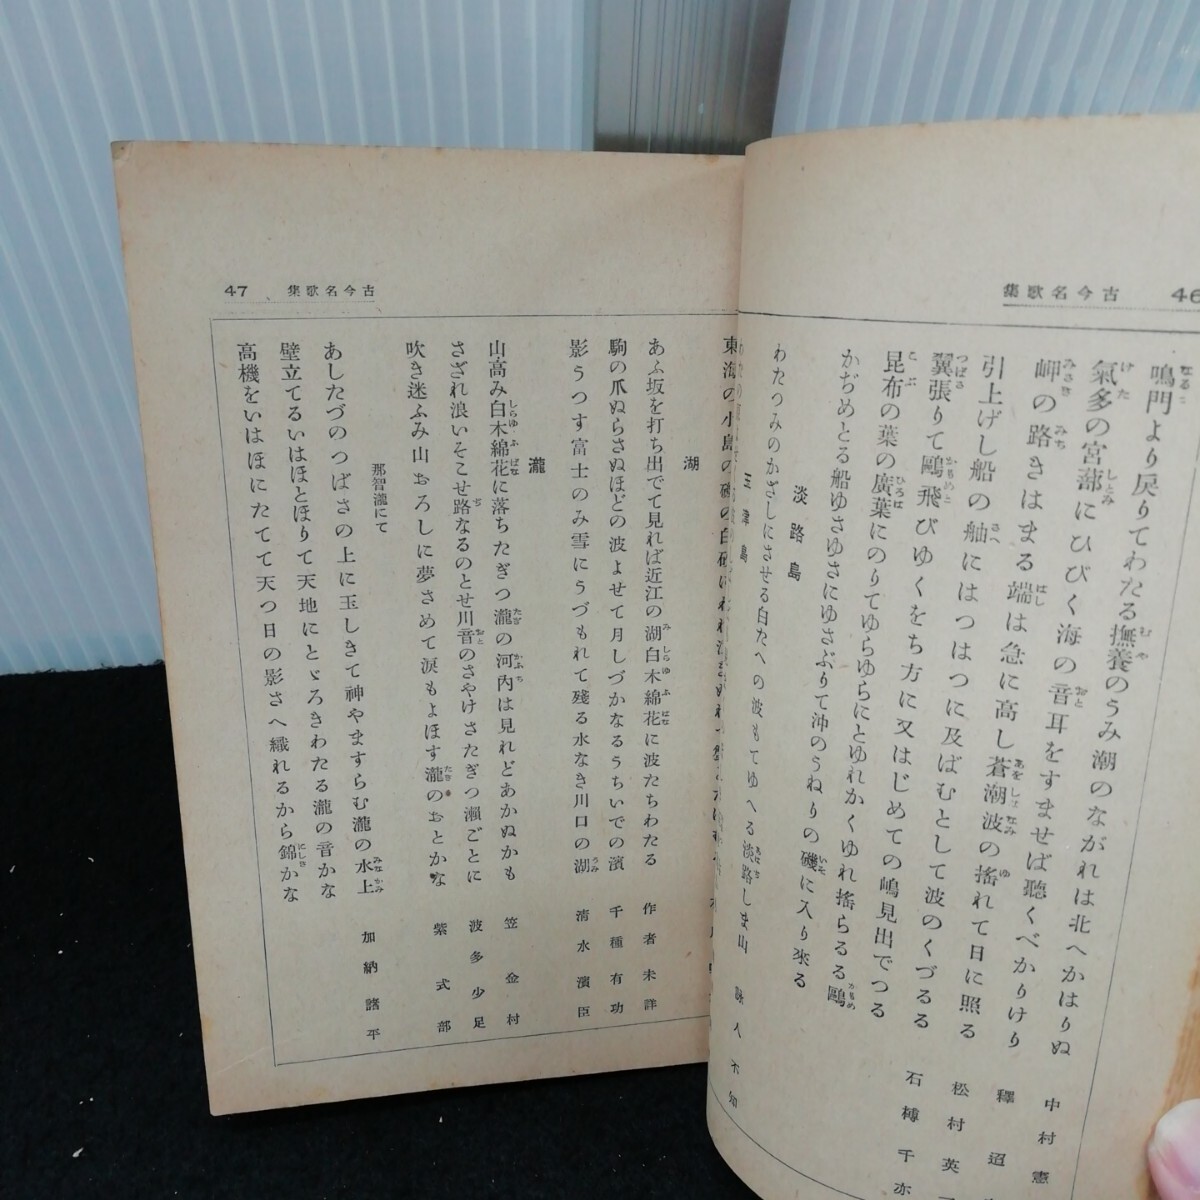 古今名歌集
鳴門より戻りてわたる撫養のうみ潮のながれは北へかはりぬ
中村憲
氣多の宮蔀にひびく海の音耳をすませば聽くべかりけり
釋迢
岬の路きはまる端は急に高し蒼潮波の搖れて日に照る
松村英
引上げし船の舳にはつはつに及ばむとして波のくづるる
石榑千亦
翼張りて鷗飛びゆくをち方に又はじめての嶋見出でつる
昆布の葉の廣葉にのりてゆらゆらにとゆれかくゆれ搖らるる鷗
かぢめとる船ゆさゆさにゆさぶりて沖のうねりの磯に入り來る
淡路島
わたつみのかざしにさせる白たへの波もてゆへる淡路しま山
詠人不知
玉津島
47 古今名歌集
東海の小島の磯の白砂に
湖
あふ坂を打ち出でて見れば近江の湖白木綿花に波たちわたる
作者未詳
駒の爪ぬらさぬほどの波よせて月しづかなるうちいでの濱
千種有功
影うつす富士のみ雪にうづもれて殘る水なき川口の湖
淸水濱臣
瀧
山高み白木綿花に落ちたぎつ瀧の河內は見れどあかぬかも
笠金村
さざれ浪いそこせ路なるのとせ川音のさやけさたぎつ瀨ごとに
波多少足
吹き迷ふみ山おろしに夢さめて淚もよほす瀧のおとかな
紫式部
那智瀧にて
あしたづのつばさの上に玉しきて神やますらむ瀧の水上
加納諸平
壁立てるいはほとほりて天地にとゞろきわたる瀧の音かな
高機をいはほにたてて天つ日の影さへ織れるから錦かな